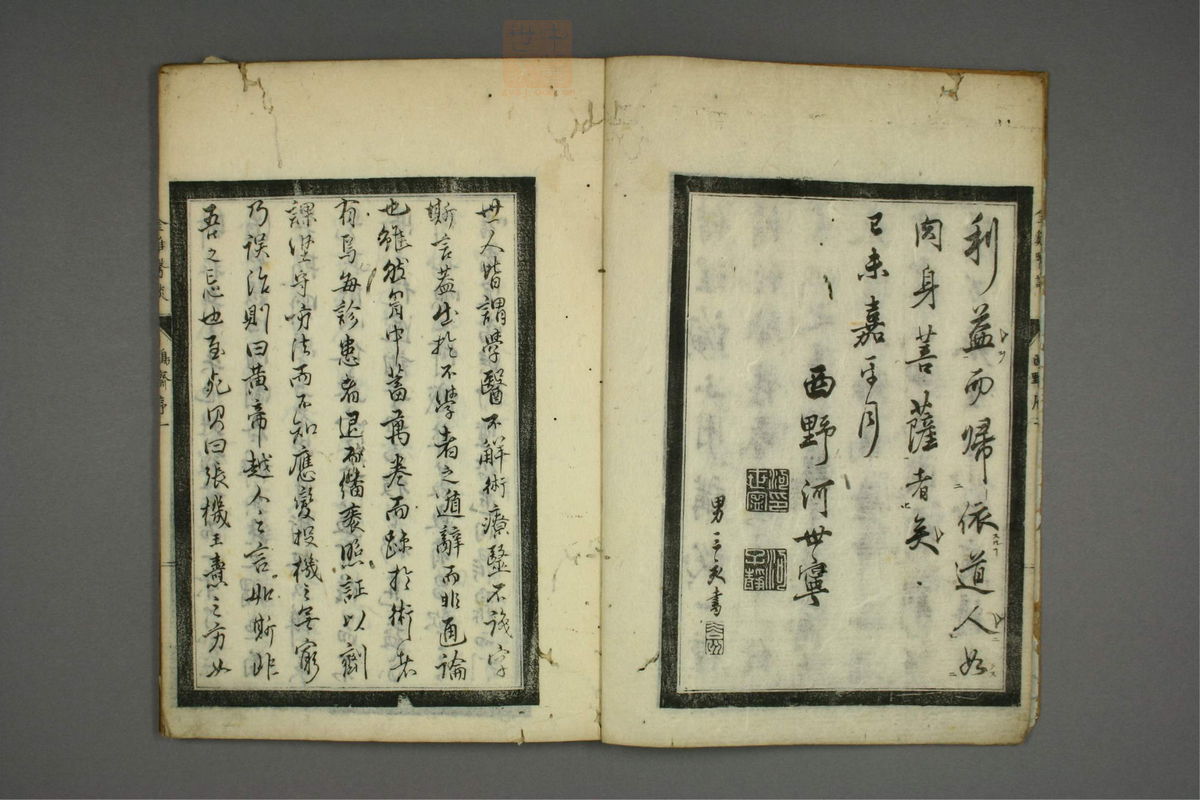 利益而帰依道人如
肉身菩薩者矣
己未嘉平月
西野河世寧
男三亥書
世人皆謂學醫不解術療醫不識字
斯言蓋出於不學者之遁辭而非通論
也雖然胷中蓄萬卷而踈於術者
有焉每診患者退而繙袠照証以劑
課堅守方法而不知應變投機之無窮
乃誤治則曰黃帝越人之言如斯非
吾之忌也至死則曰張機王燾之方如